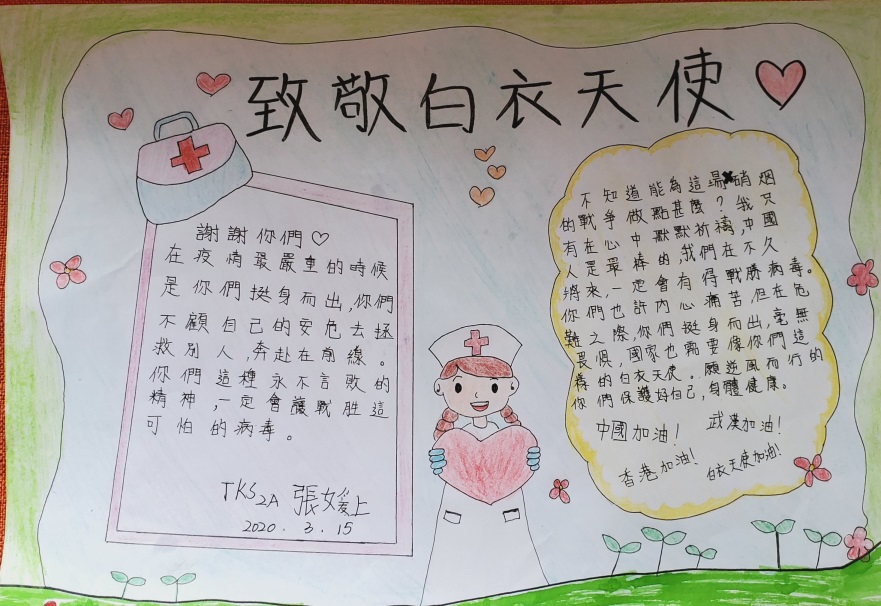 致敬白衣天使
謝謝你們♡
在疫情最嚴重的時候
是你們挺身而出,你們
不顧自己的安危去拯
救別人,奔赴在前線。
你們這種永不言敗的
精神,一定會讓戰胜這
可怕的病毒。
TKS 2A 張媛上
2020.3.15
不知道能為這場硝烟
的戰爭做點甚麼?我只
有在心中默默祈禱,中國
人是最棒的,我們在不久
將來,一定會有得戰勝病毒。
你們也許內心痛苦,但在危
難之際,你們挺身而出,毫無
畏惧,國家也需要像你們這
樣的白衣天使。願逆風而行的
你們保護好自己,身體健康。
中國加油! 武漢加油!
香港加油! 白衣天使加油!